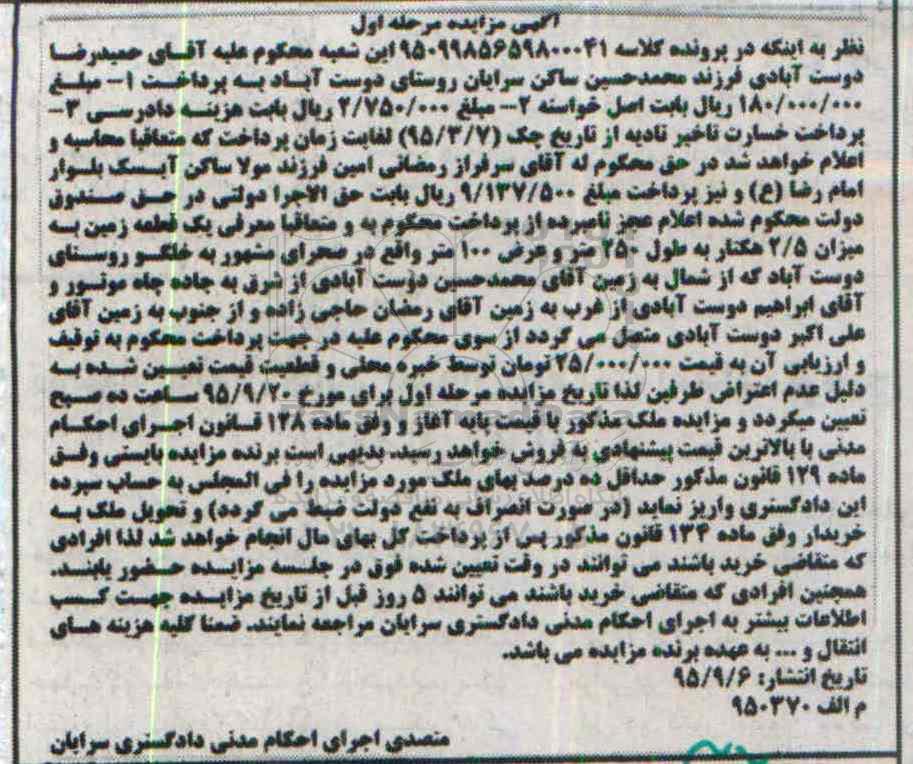 آگهی مزایده مرحله اول
نظر به اینکه در پرونده کلاسه ۹۵۰۹۹۸۵۶۵۹۸۰۰۰۴۱ این شعبه محکوم علیه آقای حمیدرضا
دوست آبادی فرزند محمدحسین ساکن سرایان روستای دوست آباد به پرداخت ۱- مبلغ
۱۸۰/۰۰۰/۰۰۰ ریال بابت اصل خواسته ۲- مبلغ ۲/۷۵۰/۰۰۰ ریال بابت هزینه دادرسی ۳-
پرداخت خسارت تاخیر تادیه از تاریخ چک (۹۵/۳/۷) لغایت زمان پرداخت که متعاقبا محاسبه و
اعلام خواهد شد در حق محکوم له آقای سرفراز رمضانی امین فرزند مولا ساکن آیسک بلوار
امام رضا (ع) و نیز پرداخت مبلغ ۹/۱۳۷/۵۰۰ ریال بابت حق الاجرا دولتی در حق صندوق
دولت محکوم شده اعلام عجز نامبرده از پرداخت محکوم به و متعاقبا معرفی یک قطعه زمین به
میزان ۲/۵ هکتار به طول ۲۵۰ متر و عرض ۱۰۰ متر واقع در صحرای مشهور به خلکو روستای
دوست آباد که از شمال به زمین آقای محمدحسین دوست آبادی از شرق به جاده چاه موتور و
آقای ابراهیم دوست آبادی از غرب به زمین آقای رمضان حاجی زاده و از جنوب به زمین آقای
علی اکبر دوست آبادی متصل می گردد از سوی محکوم علیه در جهت پرداخت محکوم به توقیف
و ارزیابی آن به قیمت ۲۵/۰۰۰/۰۰۰ تومان توسط خبره محلی و قطعیت قیمت تعیین شده به
دلیل عدم اعتراض طرفین لذا تاریخ مزایده مرحله اول برای مورخ ۹۵/۹/۲۰ ساعت ده صبح
تعیین میگردد و مزایده ملک مذکور با قیمت پایه آغاز و وفق ماده ۱۲۸ قانون اجرای احکام
مدنی با بالاترین قیمت پیشنهادی به فروش خواهد رسید. بدیهی است برنده مزایده بایستی وفق
ماده ۱۲۹ قانون مذکور حداقل ده درصد بهای ملک مورد مزایده را فی المجلس به حساب سپرده
این دادگستری واریز نماید (در صورت انصراف به نفع دولت ضبط می گردد) و تحویل ملک به
خریدار وفق ماده ۱۳۴ قانون مذکور پس از پرداخت کل بهای مال انجام خواهد شد لذا افرادی
که متقاضی خرید باشند می توانند در وقت تعیین شده فوق در جلسه مزایده حضور یابند.
همچنین افرادی که متقاضی خرید باشند می توانند ۵ روز قبل از تاریخ مزایده جهت کسب
اطلاعات بیشتر به اجرای احکام مدنی دادگستری سرایان مراجعه نمایند. ضمنا کلیه هزینه های
انتقال و ... به عهده برنده مزایده می باشد.
تاریخ انتشار: ۹۵/۹/۶
م الف ۹۵۰۳۷۰
متصدی اجرای احکام مدنی دادگستری سرایان